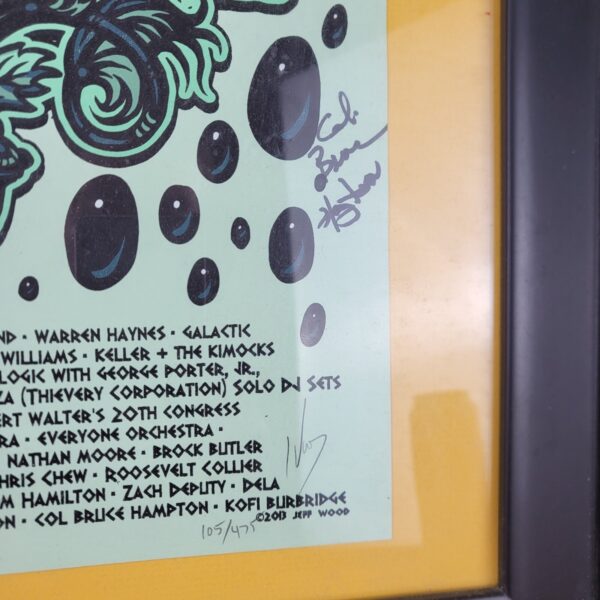 Col.
Bruce
ND · WARREN HAYNES · GALACTIC
WILLIAMS · KELLER + THE KIMOCKS
LOGIC WITH GEORGE PORTER, JR.,
ZA (THIEVERY CORPORATION) SOLO DJ SETS
ERT WALTER'S 20TH CONGRESS
RA · EVERYONE ORCHESTRA ·
NATHAN MOORE · BROCK BUTLER
CHRIS CHEW · ROOSEVELT COLLIER
M HAMILTON · ZACH DEPUTY · DELA
ON · COL BRUCE HAMPTON · KOFI BURBRIDGE
©2013 JEFF WOOD
105/475